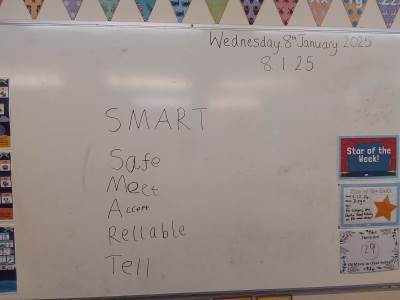 Wednesday 8th January 2025
8.1.25
SMART
Safe
Meet
Accept
Reliable
Tell
Star of the
Week!
29